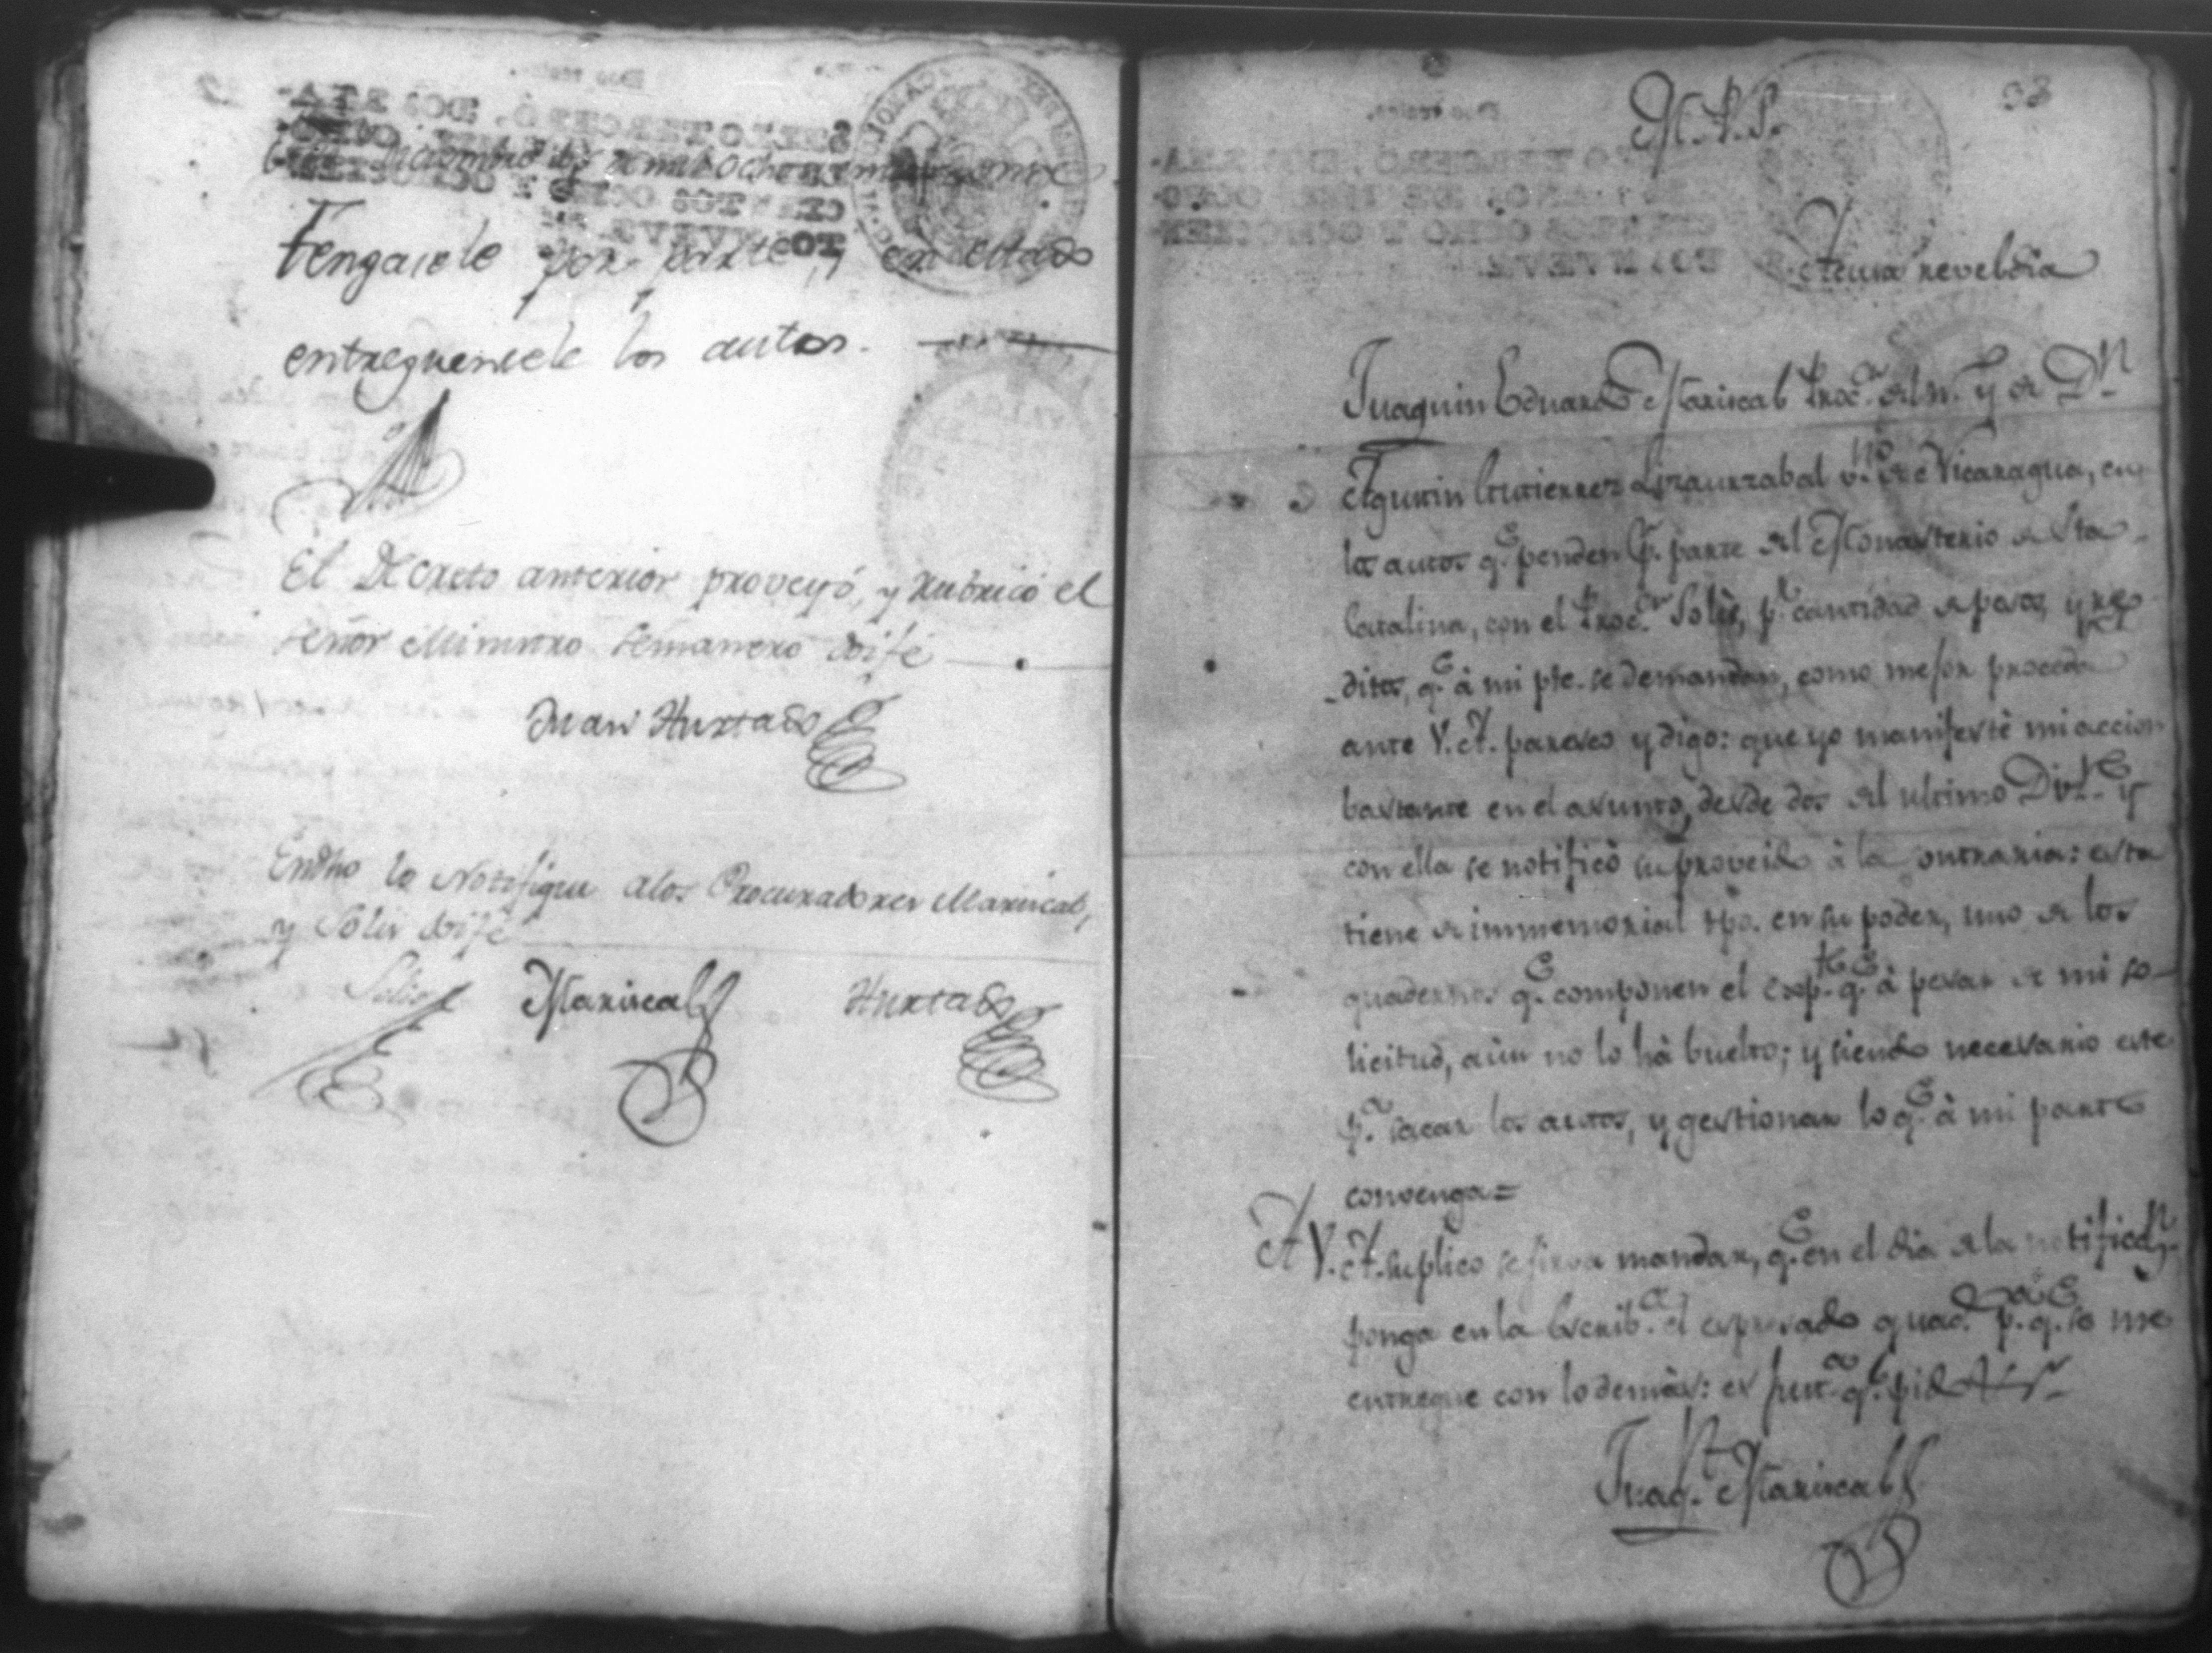 Diciembre dos de mil ochocientos nueve
Tengasele por parte, y en estado
entreguensele los autos.
El Decreto anterior proveyó, y rubricó el
señor Ministro semanero doi fé
Juan Hurtado
En dho lo Notifique a los Procuradores Mariscal,
y Solis doi fé
Solis Mariscal Hurtado
98
M. P. S.
Acusa reveldia
Juaquin Eduardo Mariscal Proc.or del n.o y de D.n
Agustin Gutierrez Lizaurzabal v.no de Nicaragua, en
los autos q.e penden p.r parte del Monasterio de Sta
Catalina, con el Proc.or Solis, p.r cantidad de pesos, y re
ditos, q.e à mi pte. se demandan, como mejor proceda
ante V. A. paresco y digo: que yo manifestè mi accion
bastante en el asunto, desde dos del ultimo Div.re y
con ella se notificò su proveido à la contraria: esta
tiene de immemorial tpo. en su poder, uno de los
quadernos q.e componen el exp.te q.e à pesar de mi so-
licitud, aùn no lo hà buelto; y siendo necesario este
p.a sacar los autos, y gestionar lo q.e à mi parte
convenga=
A V. A. suplico se sirva mandar, q.e en el dia de la notificac.n
ponga en la Escrib.a el expresado quad.o p.a q.e se me
entregue con lo demàs: es just.a q.e pido
Juaq.n Mariscal